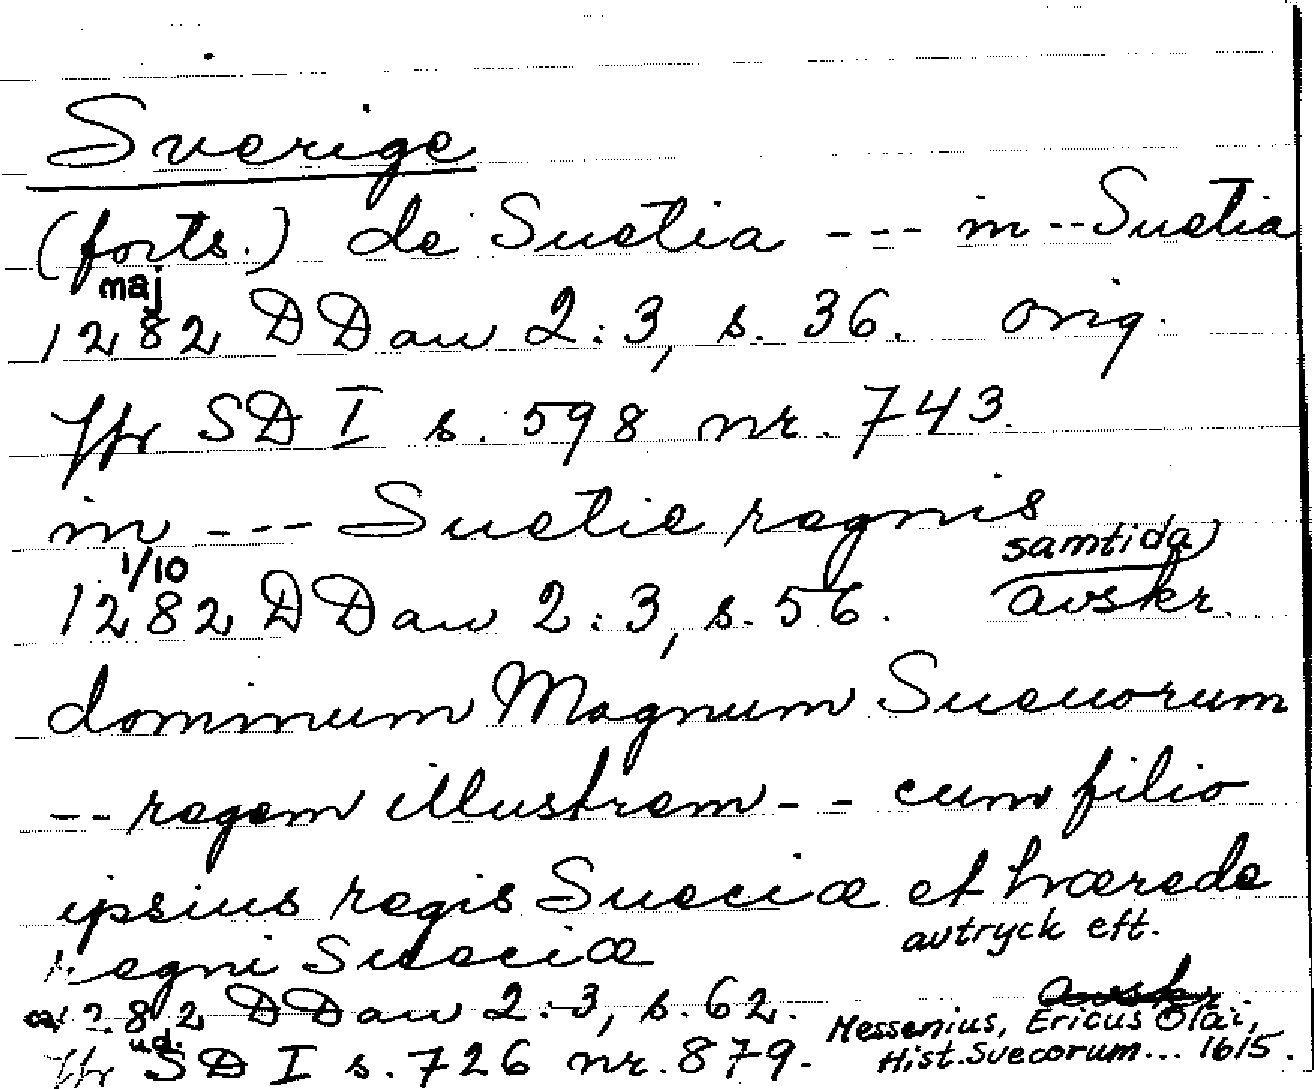 Sverige
(forts.) de Suetia --- in -- Suetia
maj
1282 DDan 2:3, s. 36. orig.
Jfr SD I s. 598 nr. 743.
in --- Suetie regnis
1/10 samtida
1282 DDan 2:3, s. 56. avskr.
dominum Magnum Sueuorum
-- regem illustrem -- cum filio
ipsius regis Sueciæ et hærede
regni Sueciæ avtryck eft.
1282 DDan 2:3, s. 62. avskr.
Messenius, Ericus Olai,
Jfr SD I s. 726 nr. 879. Hist. Svecorum... 1615.